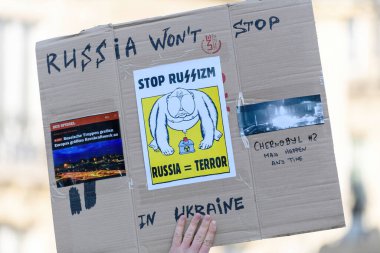 RUSSIA WON'T STOP
STOP RUSSIZM
DER SPIEGEL
Russische Truppen greifen
Europas größtes
RUSSIA = TERROR
CHERNOBYL #2
MAY HAPPEN
ANY TIME
IN UKRAINE